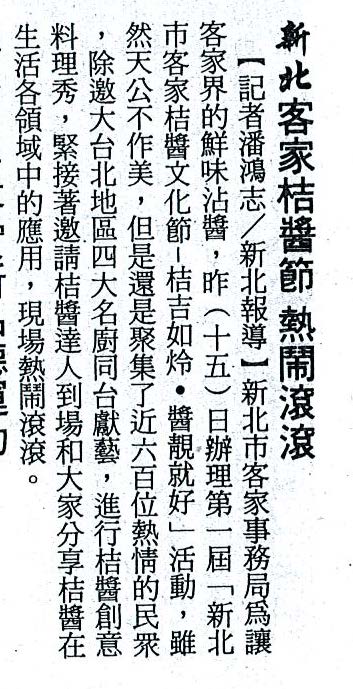 新北客家桔醬節 熱鬧滾滾
【記者潘鴻志／新北報導】新北市客家事務局為讓
客家界的鮮味沾醬，昨（十五）日辦理第一屆「新北
市客家桔醬文化節–桔吉如怜•醬靚就好」活動，雖
然天公不作美，但是還是聚集了近六百位熱情的民眾
，除邀大台北地區四大名廚同台獻藝，進行桔醬創意
料理秀，緊接著邀請桔醬達人到場和大家分享桔醬在
生活各領域中的應用，現場熱鬧滾滾。